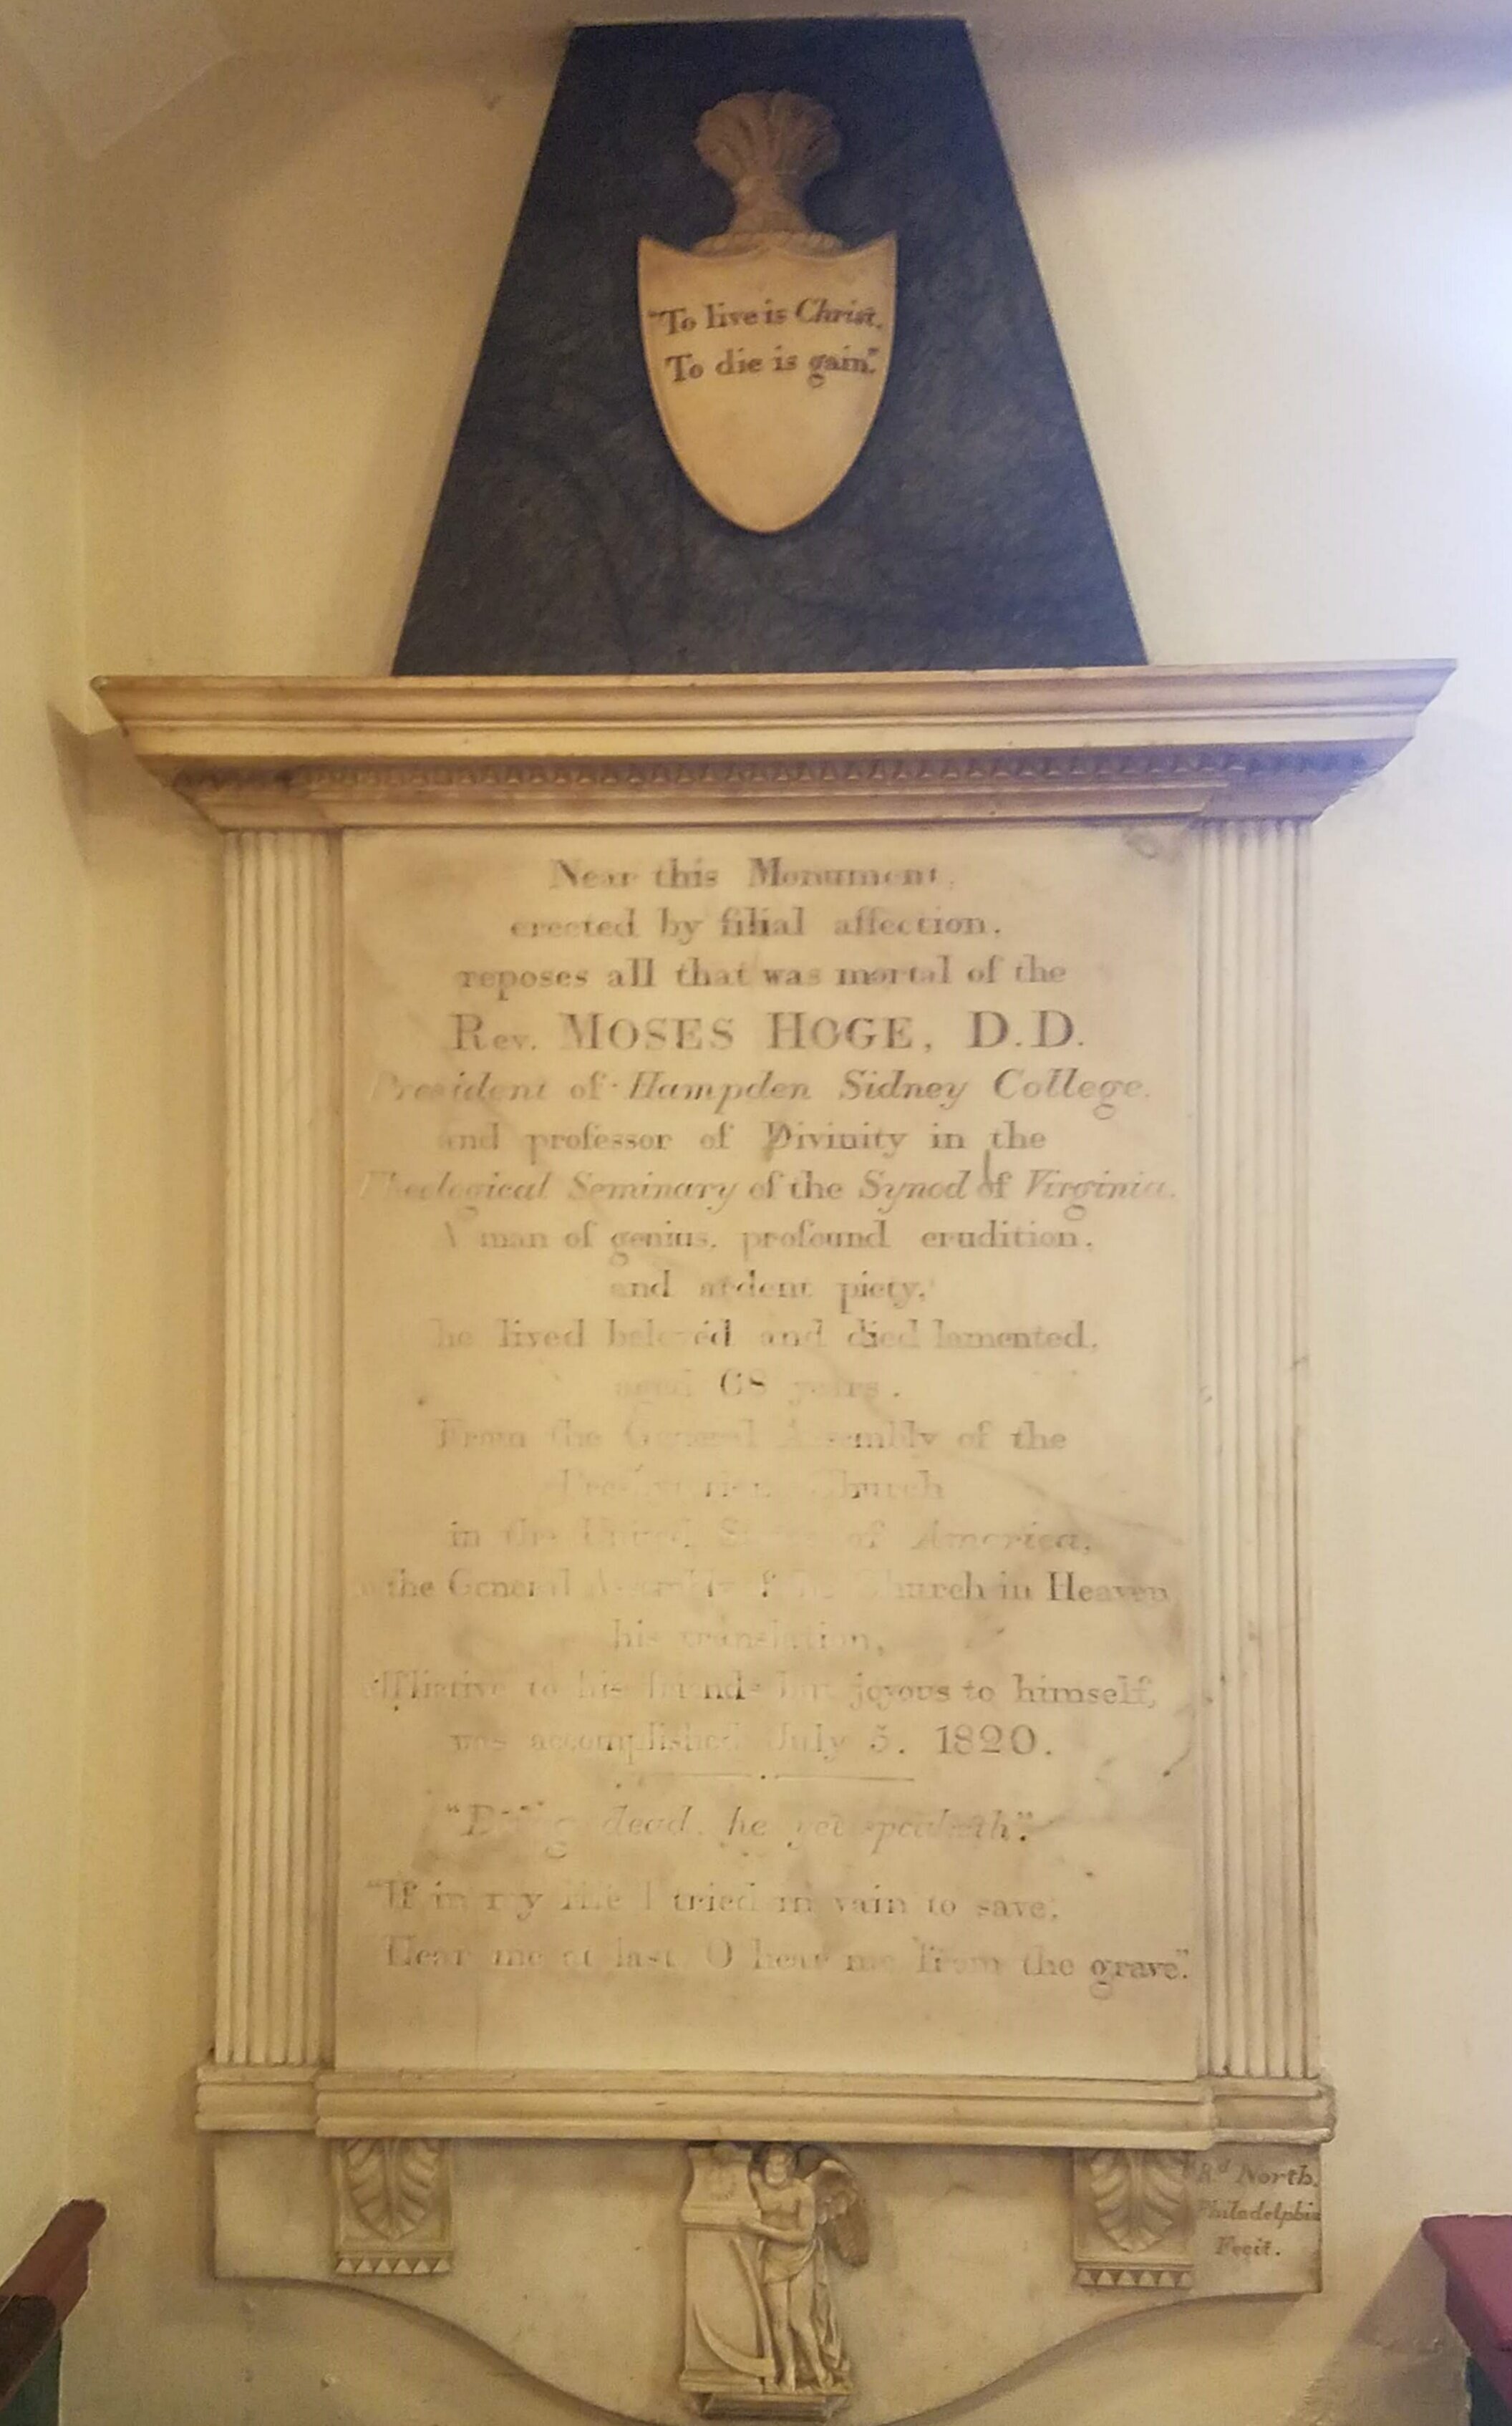 "To live is Christ,
To die is gain."
Near this Monument,
erected by filial affection,
reposes all that was mortal of the
Rev. MOSES HOGE, D.D.
President of Hampden Sidney College,
and professor of Divinity in the
Theological Seminary of the Synod of Virginia.
A man of genius, profound erudition,
and ardent piety,
he lived beloved and died lamented,
aged 68 years.
From the General Assembly of the
Presbyterian Church
in the United States of America,
the General Assembly of the Church in Heaven
his translation,
afflictive to his friends but joyous to himself,
was accomplished July 5. 1820.
"Being dead, he yet speaketh".
"If in my life I tried in vain to save;
Hear me at last, O hear me from the grave."
Rd North.
Philadelphia
Fecit.